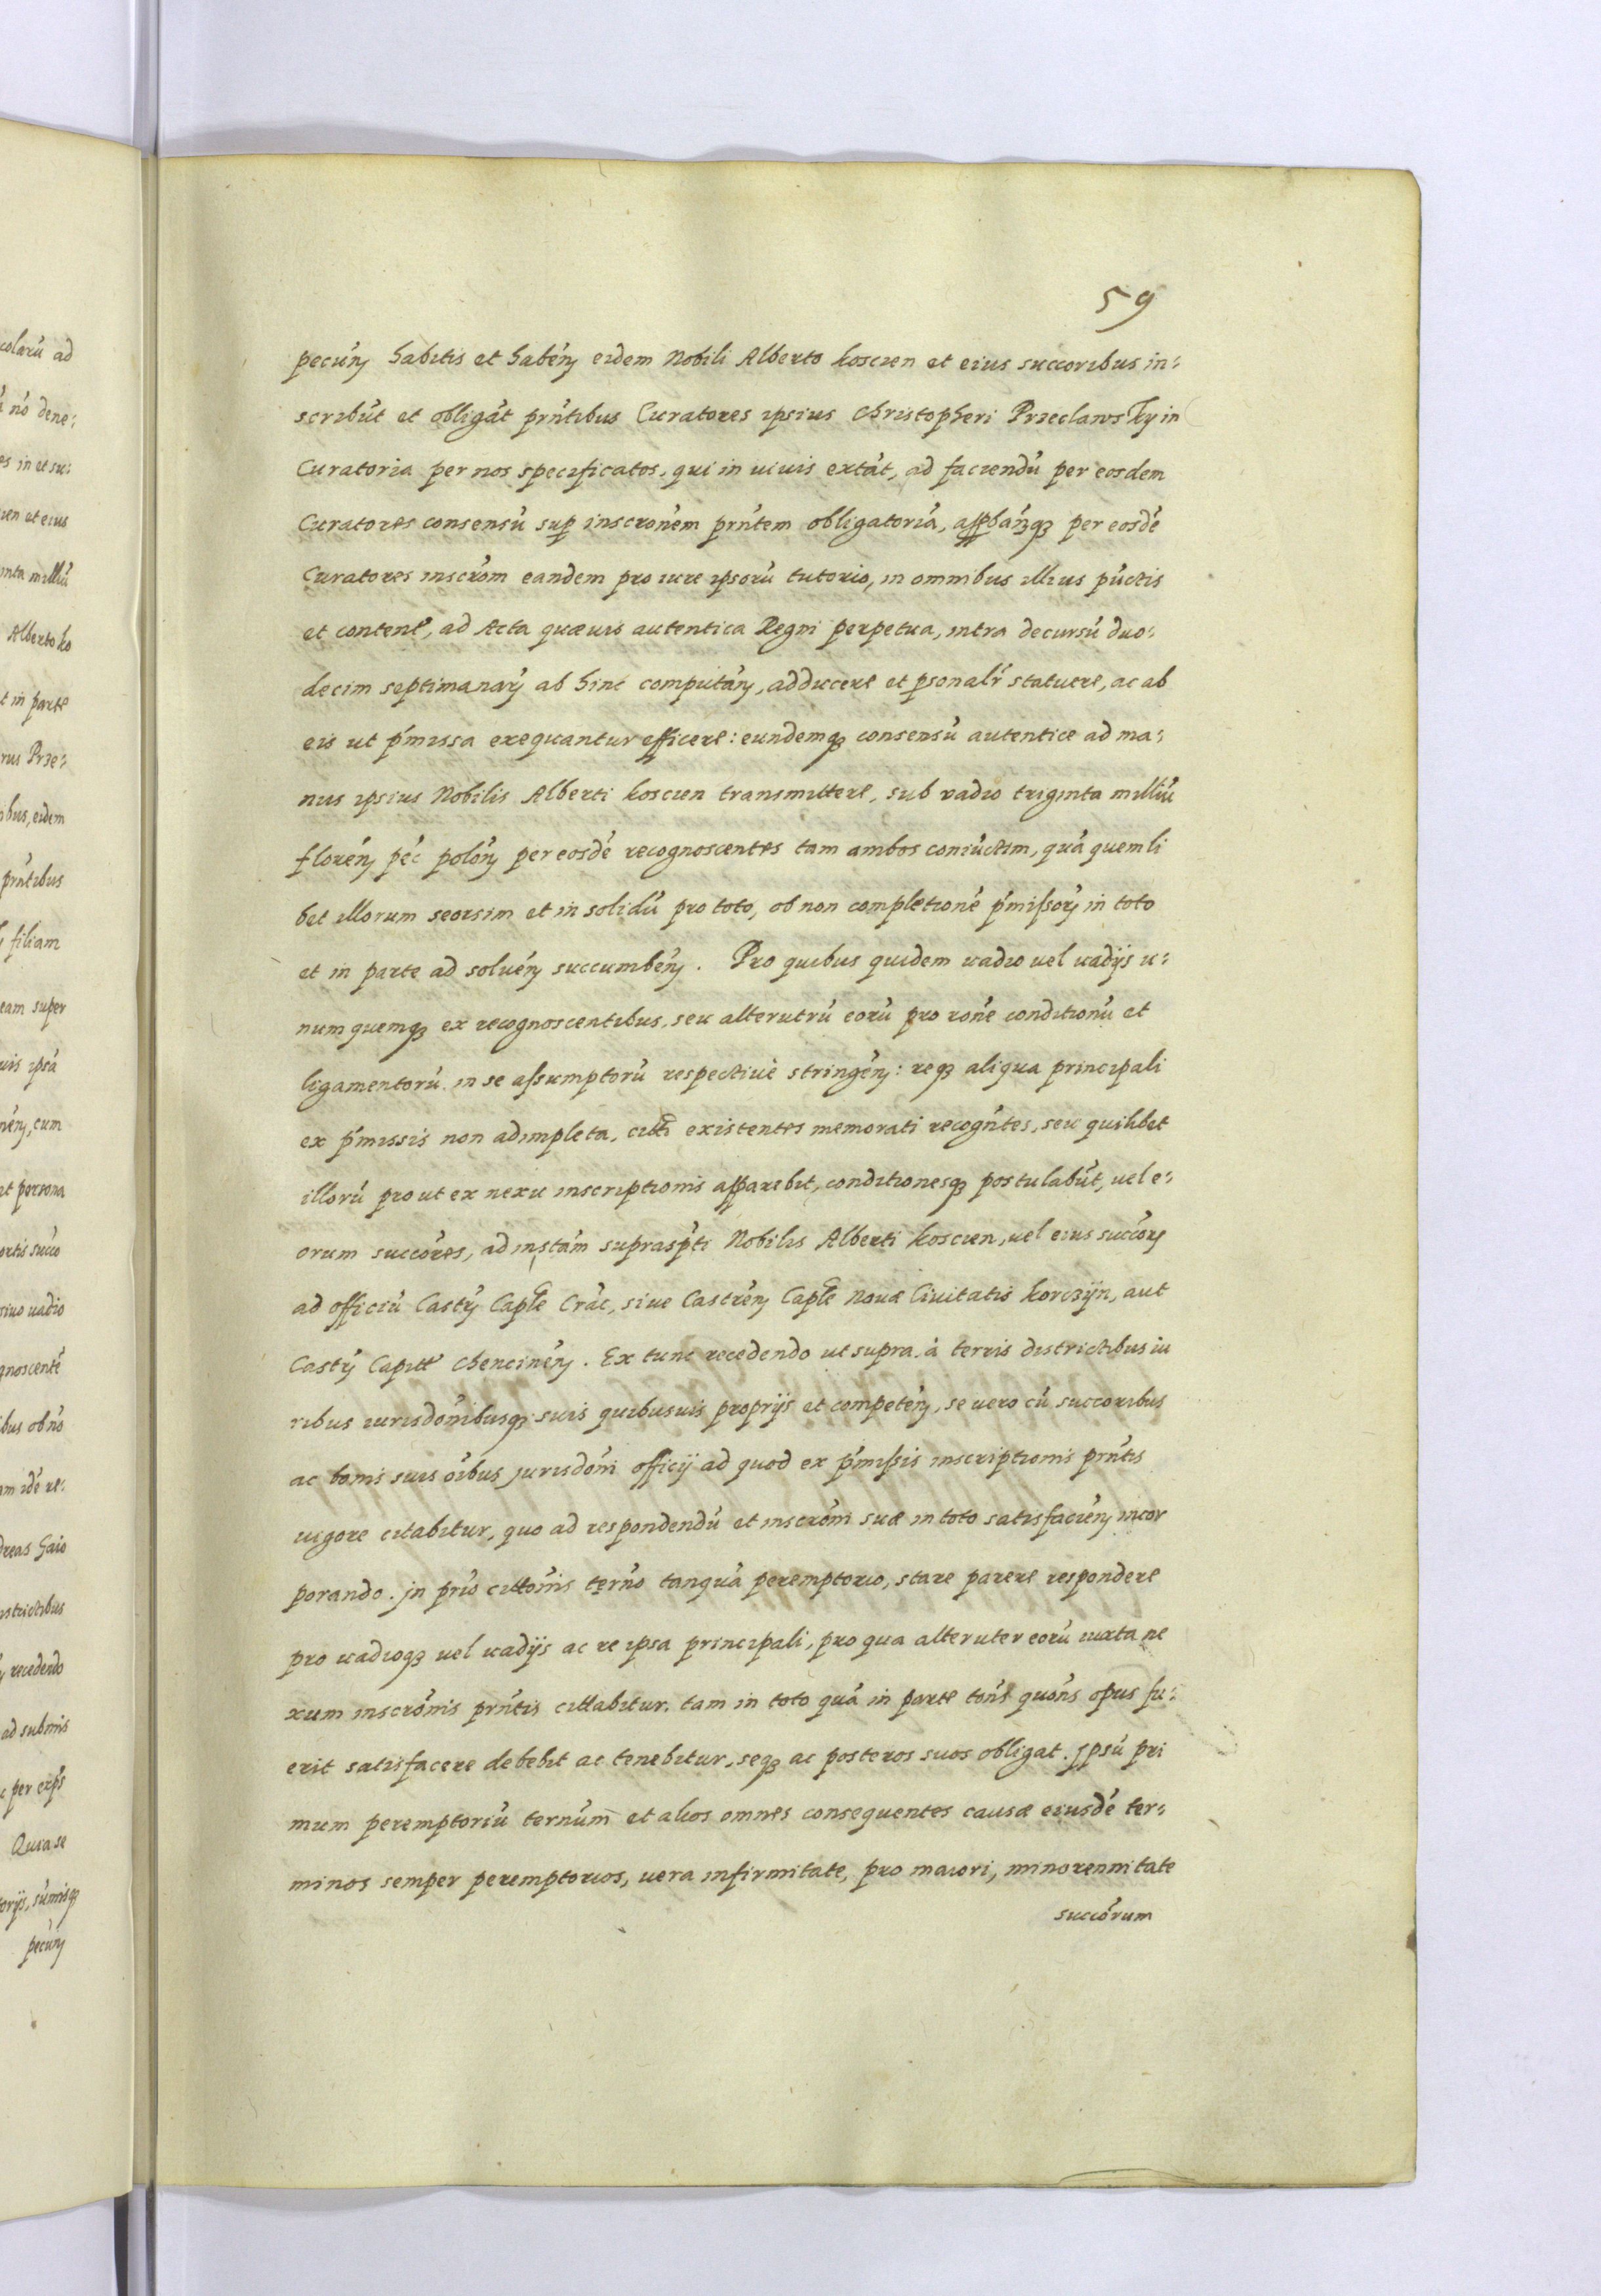 59
colarú ad
nó dene:
es in et su:
ien et eius
inta milliú
Alberto ko
t in parte
rus Prze:
ibus, eidem
prńtibus
filiam
eam super
uis ipsá
néŋ, cum
at persona
ortis succo
siuo uadio
gnoscenté
ibus ob nó
am idé re:
dreas Gaio
istrictibus
recedendo
ad submis
per exp̃s
Quia se
torijs, súmisqꝫ
pecúŋ
pecúŋ habitis et habéŋ eidem Nobili Alberto koscien et eius succoribus in:
scribút et obligát prńtibus Curatores ipsius Christopheri Przeclawsky in
Curatoria per nos specificatos, qui in uiuis extát, ad faciendú per eosdem
Curatores consensú sup inscronem prńtem obligatoriá, appbáńqꝫ per eosdé
Curatores inscróm eandem pro iure ipsorú tutorio, in omnibus illius púctis
et contentꝭ, ad Acta quæuis autentica Regni perpetua, intra decursú duo:
decim septimanarꝝ ab hinc computáŋ, adducere et psonalr̃ statuere, ac ab
eis ut pŕmissa exequantur efficere: eundemqꝫ consensú autentice ad ma:
nus ipsius Nobilis Alberti koscien transmittere, sub vadio triginta milliú
floréŋ péc̃ polóŋ per eosdé recognoscentes tam ambos coniúctim, quá quemli
bet illorum seorsim et in solidú pro toto, ob non completioné pŕmissorꝝ in toto
et in parte ad soluéŋ succumbéŋ. Pro quibus quidem uadio uel uadijs u:
num quemqꝫ ex recognoscentibus, seu alterutrú eorú pro roné conditionú et
ligamentorú in se assumptorú respectiuè stringéŋ: reqꝫ aliqua principali
ex pŕmissis non adimpleta, citti existentes memorati recogńtes, seu quilibet
illorú prout ex nexu inscriptionis apparebit, conditionesqꝫ postulabút, uel e:
orum succóres, ad instám suprasp̃ti Nobilis Alberti koscien, uel eius succórꝝ
ad officiú Castꝝ Capłe Crác, siue Castréŋ Capłe Nouæ Ciuitatis korczÿn, aut
Castꝝ Capitt Chencinéŋ. Ex tunc recedendo ut supra à terris districtibus iu
ribus iurisdóńibusqꝫ suis quibusuis proprijs et competéŋ, se uero cú succoribus
ac bonis suis óibus jurisdóńi officij ad quod ex pŕmissis inscriptionis prńtis
uigore citabitur, quo ad respondendú et inscróńi suæ in toto satisfaciéŋ incor
porando. jn prió cittóńis térno tanquá peremptorio, stare parere respondere
pro uadioqꝫ uel uadijs ac re ipsa principali, pro qua alteruter eorú iuxta ne
xum inscróńis prńtis cittabitur, tam in toto quá in parte tońs quońs opus fu:
erit satisfacere debebit ac tenebitur, seqꝫ ac posteros suos obligat. jpsú pri
mum peremptoriú ternum̃ et alios omnes consequentes causæ eiusdé ter:
minos semper peremptorios, uera infirmitate, pro maiori, minorennitate
succórum